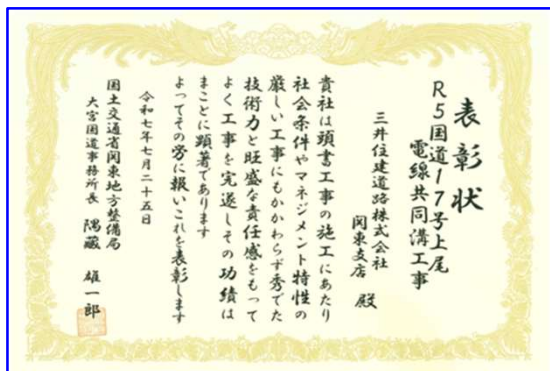 表彰状
R5国道17号上尾
電線共同溝工事
三井住建道路株式会社
関東支店 殿
貴社は頭書工事の施工にあたり
社会条件やマネジメント特性の
厳しい工事にもかかわらず秀でた
技術力と旺盛な責任感をもって
よく工事を完遂しその功績は
まことに顕著であります
よってその労に報いこれを表彰します
令和七年七月二十五日
国土交通省関東地方整備局
大宮国道事務所長 隅藏 雄一郎